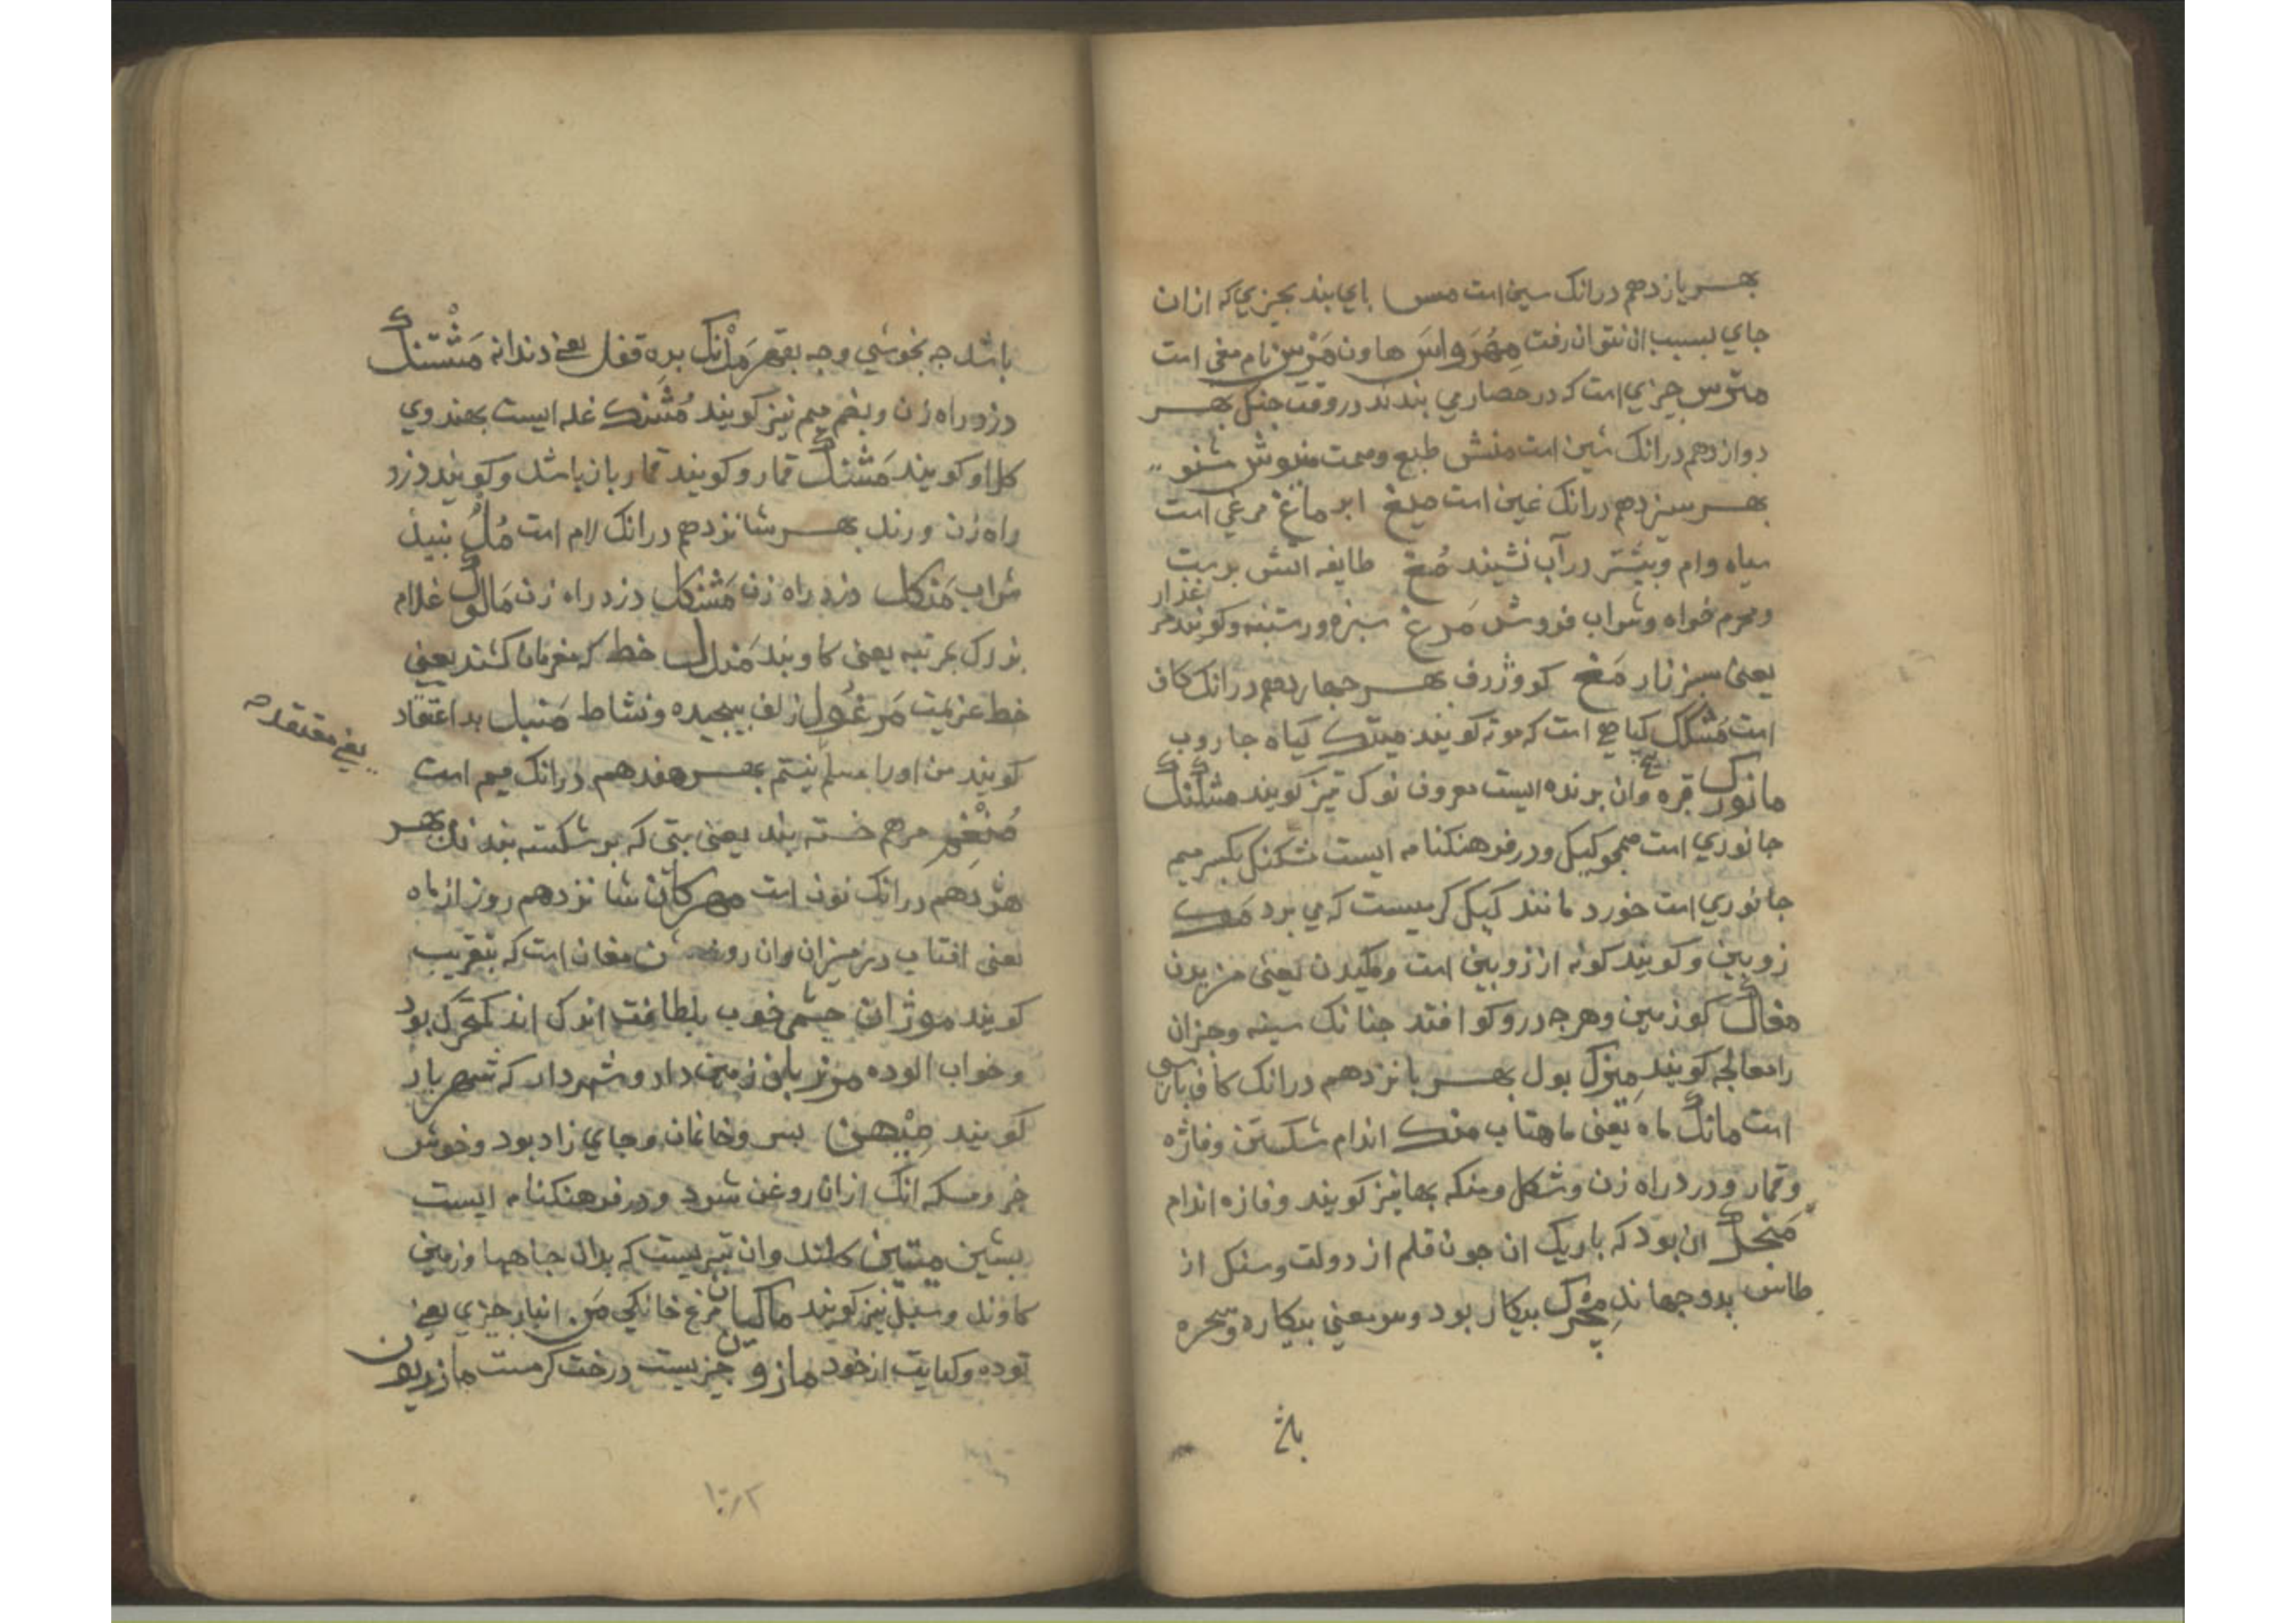 بهر یازدهم درانک سین است مس بای بند بجیزی که ازان
جای بسبب ان نتوان رفت مهراس هاون مرس نام مغی است
مترس جیزی است که در حصار می بندند در وقت جنک بهر
دوازدهم درانک شین است منش طبع و همت منوش شنو
بهر سیزدهم درانک غین است میغ ابر ماغ مرغی است
سیاه وام و بیشتر در آب نشیند مغ طایفه اتش برست
و محرم خواه و شراب فروش مرغ سبزه و رستنه و کویند مر
غزار
یعنی سبززار مغ کو و ژرف بهر جهاردهم درانک کاف
است مشکک کیاهی است که موته کویند میتک کیاه جاروب
مانورک قبره وان برنده ایست معروف نورک نیز کویند مشکنک
جانوری است همجو کیک و در فرهنکنامه ایست شکنک بکسر میم
جانوری است خورد مانند کیک کر بیست که می برد مک
زوبین و کویند کونه از زوبین است و مکیدن یعنی مزیدن
مغاک کو زمین و هرجه درو کو افتد جنانک سینه و جزان
رامعالجه کویند میزک بول بهر بانزدهم درانک کاف بارسی
است مانک ماه یعنی ماهتاب منک اندام شکستن و فاژه
و قمار و دزد راه زن و شکل و منکه بها نیز کویند و فازه اندام
منجک ان بود که باریک ان جون قلم از دولت و سنک از
طاس بدو جهاند مجرک بیکار بود و سر معنی بیکاره و سخره
باشد جه بخوشی و جه بقهر مدانک بره قفل یعنی دندانه مشتنک
دزد راه زن و بضم میم نیز کویند مشنک غله ایست بهندوی
کلاو کویند مشنک قمار و کویند قماربان باشد و کویند دزد
راه زن و رند بهر شانزدهم درانک لام است مل نبیذ
شراب منکل دزد راه زن مشنکل دزد راه زن مالوک غلام
بزرک بمرتبه یعنی کاوبند مندل خط که مغرمان کشند یعنی
خط عزیمت مرغول زلف بیجیده و نشاط منبل بد اعتقاد
یعنی معتقد
کویند من اورا مسلم نیستم بهر هفدهم درانک میم است
ملغم مرهم خسته بند یعنی بتی که بر شکسته بندند بهر
هژدهم درانک نون است مهرکان شانزدهم روز از ماه
یعنی افتاب در میزان وان روز مغان است که بتقریب
کویند موژان جشم خوب بلطافت اندک اندک متحرک بود
و خواب الوده مرزبان زمین دار و شهردار که شهریار
کویند میهن بس و خانمان و جای زاد بود و خوش
خر و مسکه انک ازان روغن شود و در فرهنکنامه ایست
بشین میتین کلند وان تبریست که بدان جاهها و زمین
کاوند و سبل نیز کویند ماکیان مرغ خانکی من انبار جیزی یعنی
توده و کنایت از خود مازون جیزیست درخت کرمست مازریون